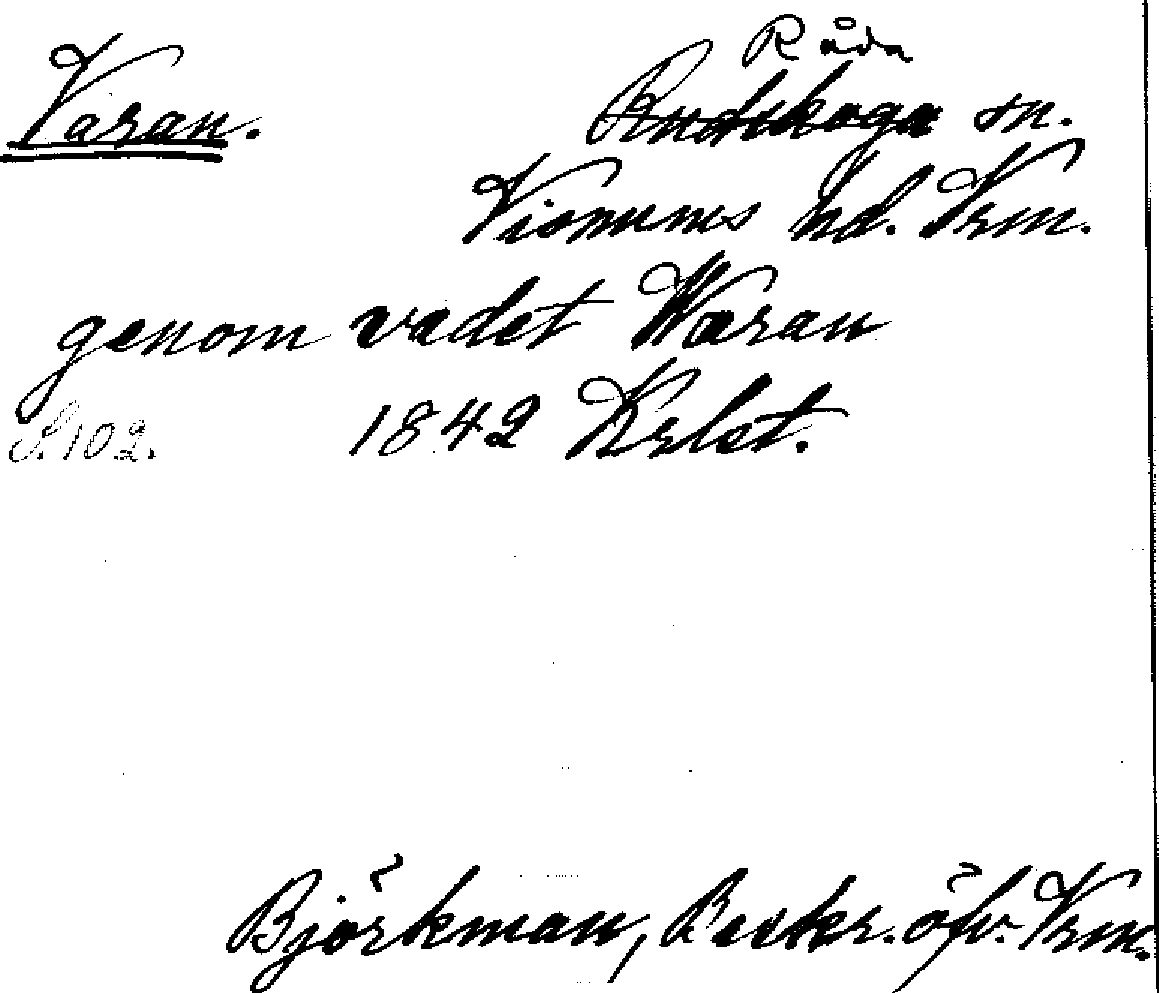 Råda
Varan. Rudskoga sn.
Visnums hd. Vrm.
genom vadet Waran
S. 102. 1842 Krlst.
Björkman, Beskr. öfv. Vrm.